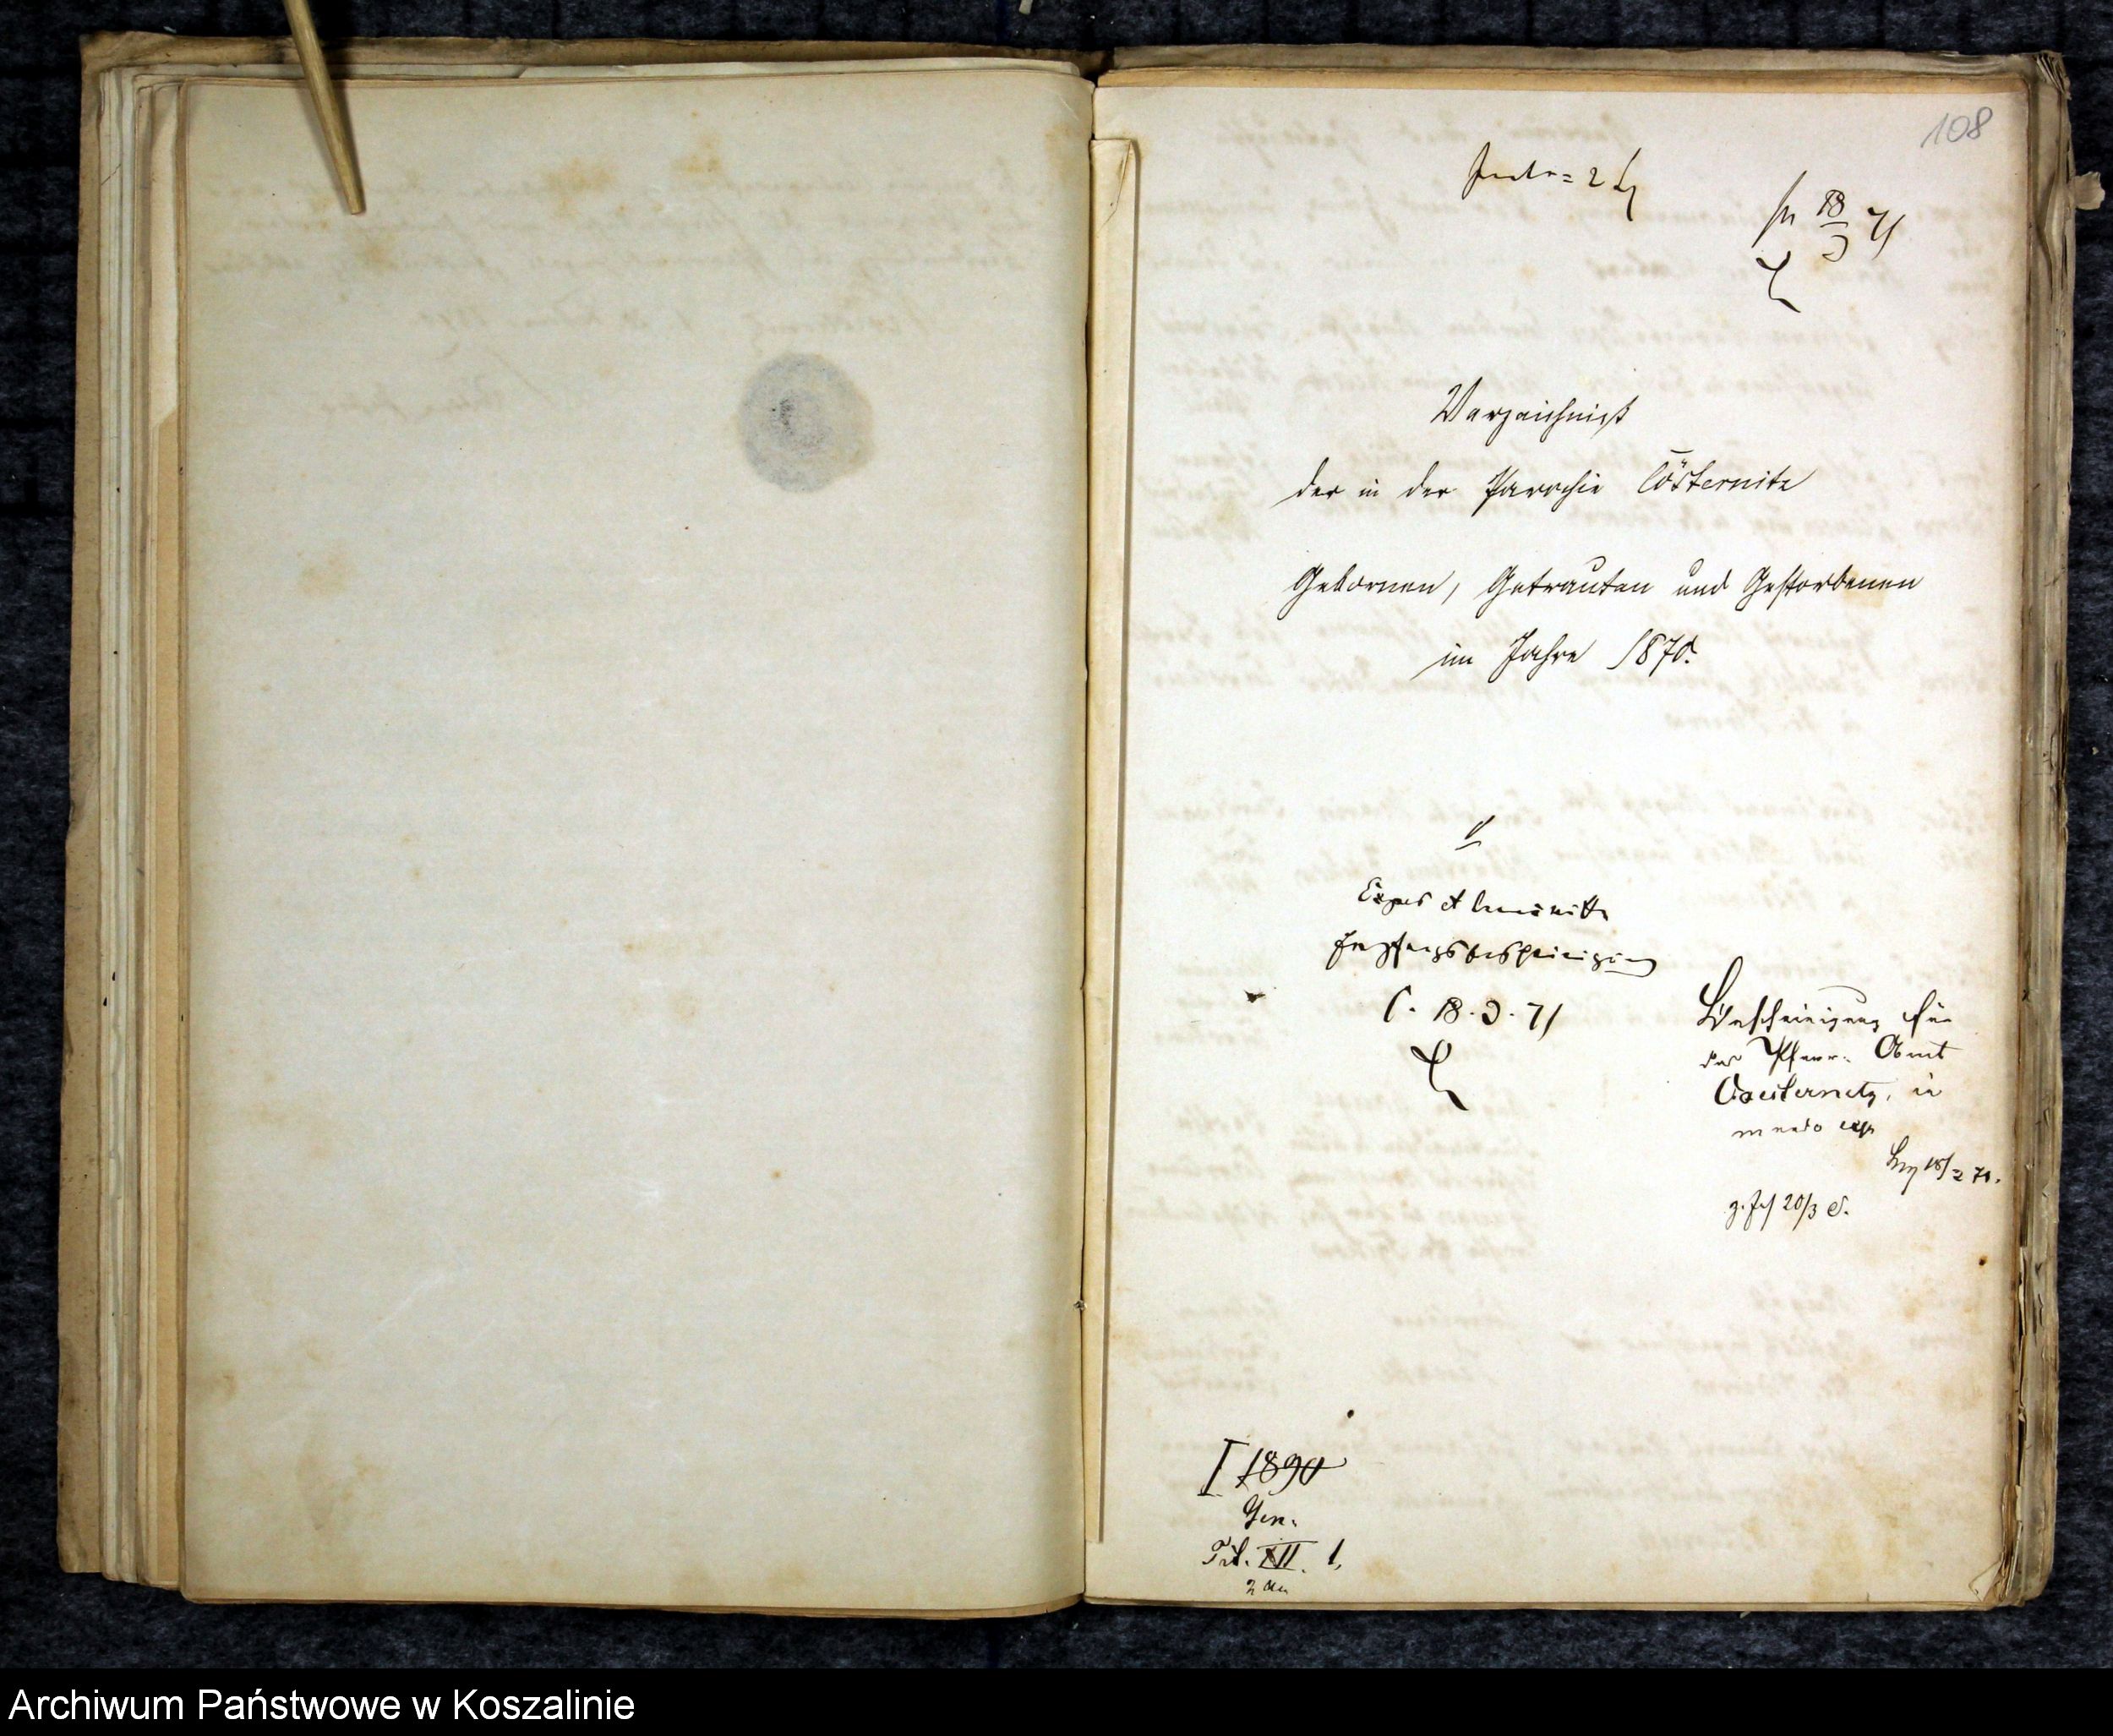 108
18
3 71
Verzeichniß
der in der Parochie Cösternitz
Gebornen, Getrauten und Gestorbenen
im Jahre 1870.
Empfangsbescheinigung
C. 18. 3. 71
Bescheinigung für
das Pfarr-Amt
Coesternitz, in
mundo exp
18/3 71.
20/3
I 1890
Gen.
Tit. XII. 1,
Archiwum Państwowe w Koszalinie